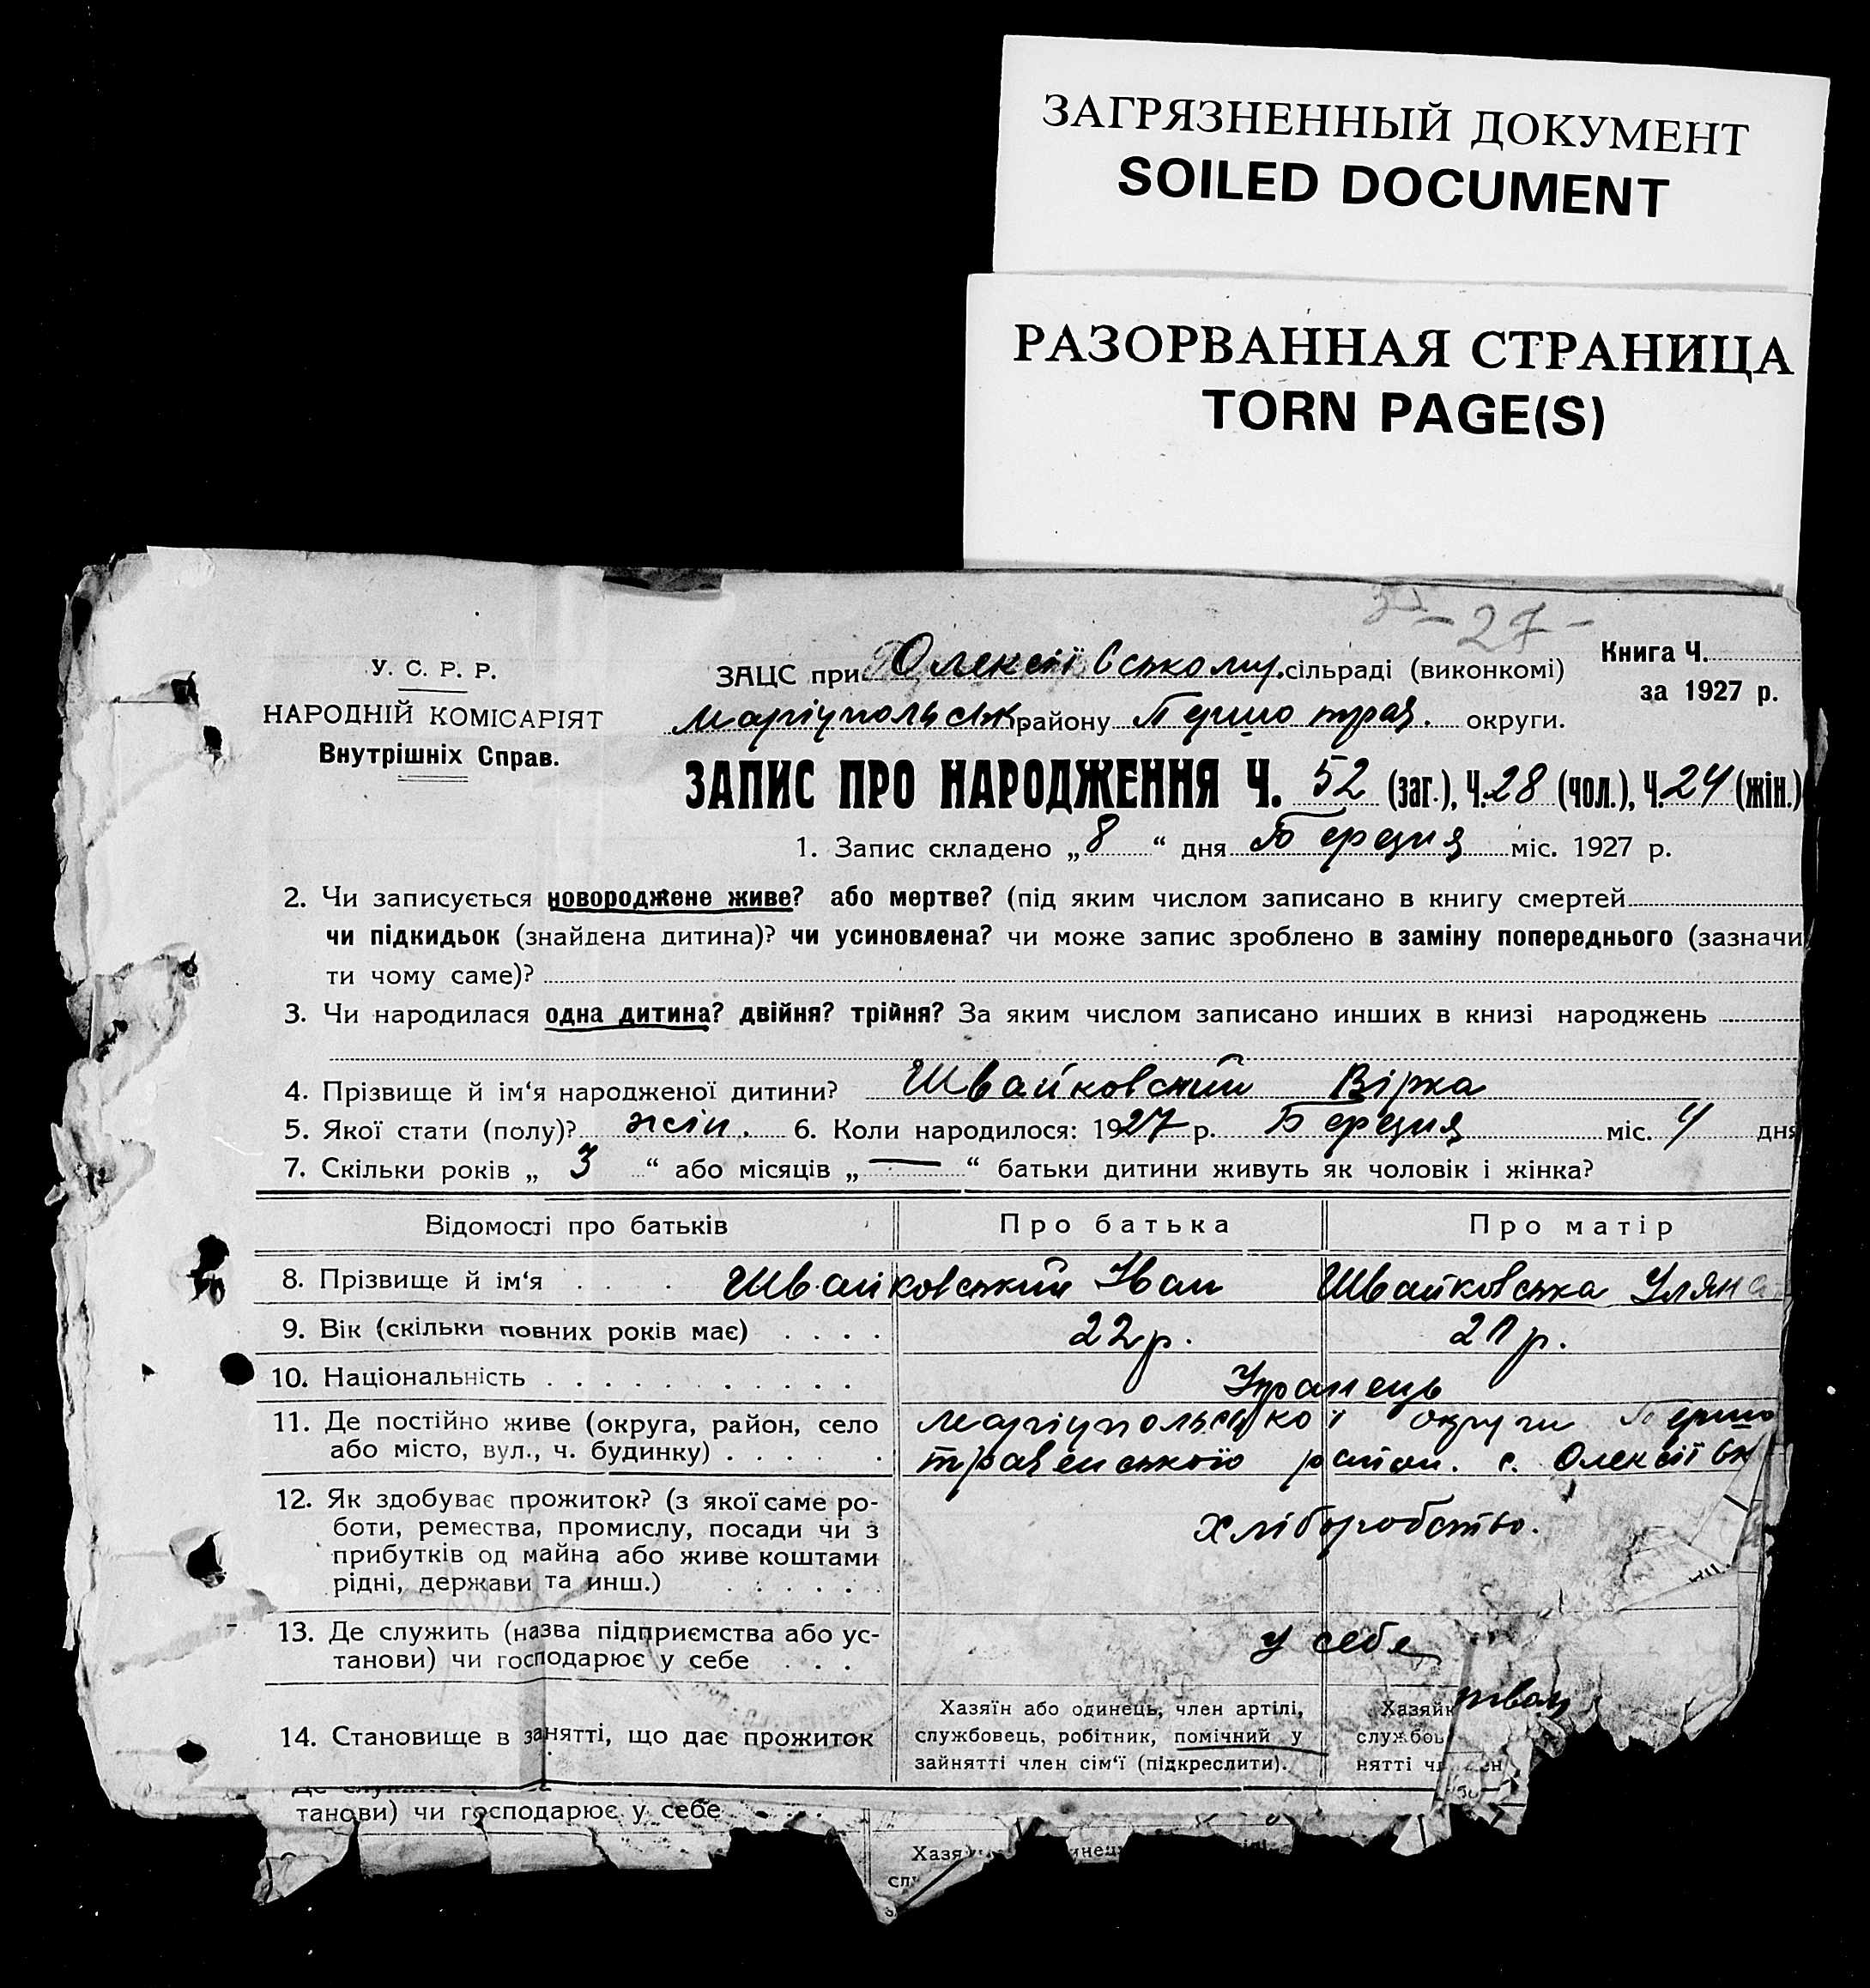 ЗАГРЯЗНЕННЫЙ ДОКУМЕНТ
SOILED DOCUMENT
РАЗОРВАННАЯ СТРАНИЦА
TORN PAGE(S)
-27-
У. С. Р. Р.
НАРОДНІЙ КОМІСАРІЯТ
Внутрішніх Справ.
ЗАЦС при Олексіївському сільраді (виконкомі)
Книга Ч.
за 1927 р.
Маріупольськ району Першотрав. округи.
ЗАПИС ПРО НАРОДЖЕННЯ Ч. 52 (заг.), Ч. 28 (чол.), Ч. 24 (жін.)
1. Запис складено „8“ дня Березня міс. 1927 р.
2. Чи записується новороджене живе? або мертве? (під яким числом записано в книгу смертей
чи підкидьок (знайдена дитина)? чи усиновлена? чи може запис зроблено в заміну попереднього (зазначи
ти чому саме)?
3. Чи народилася одна дитина? двійня? трійня? За яким числом записано инших в книзі народжень
4. Прізвище й ім‘я народженої дитини? Швайковский Вірка
5. Якої стати (полу)? жін. 6. Коли народилося: 1927 р. Березня міс. 4 дня
7. Скільки років „ 3 “ або місяців „ — “ батьки дитини живуть як чоловік і жінка?
Відомості про батьків Про батька Про матір
8. Прізвище й ім‘я . . . Швайковський Іван Швайковська Уляна
9. Вік (скільки повних років має) . . . . 22 р. 21 р.
10. Національність . . . . . . . . . . . Украпець
11. Де постійно живе (округа, район, село Маріупольської округи Першо
або місто, вул., ч. будинку) . . . . . травенського район. с. Олексіївк
12. Як здобуває прожиток? (з якої саме ро-
боти, ремества, промислу, посади чи з Хліборобство.
прибутків од майна або живе коштами
рідні, держави та инш.) . . . . . .
13. Де служить (назва підприємства або ус- у себе
танови) чи господарює у себе . . .
14. Становище в занятті, що дає прожиток
Хазяїн або одинець, член артілі,
службовець, робітник, помічний у
зайнятті член сім‘ї (підкреслити).
Хазяйк
службов
нятті чл
танови) чи господарює у себе . . . .
Хазя